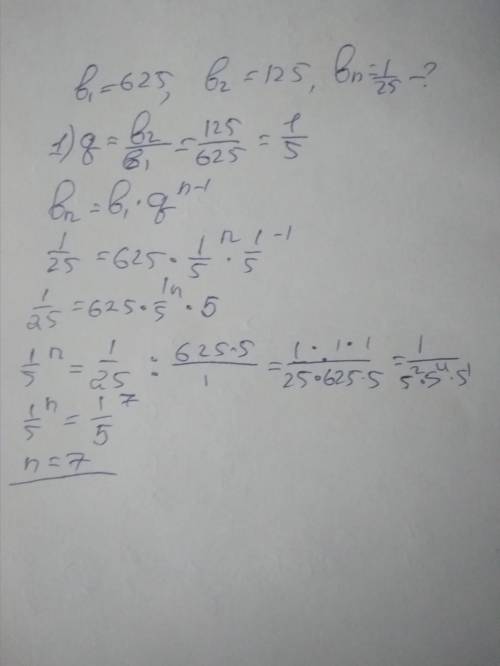 b₁=625, b₂=125, bn=1/25-?
1) q=b₂/b₁=125/625=1/5
bn=b₁·qⁿ⁻¹
1/25=625·1/5ⁿ·1/5⁻¹
1/25=625·1/5ⁿ·5
1/5ⁿ=1/25:625·5/1=1·1·1/25·625·5=1/5²·5⁴·5¹
1/5ⁿ=1/5⁷
n=7